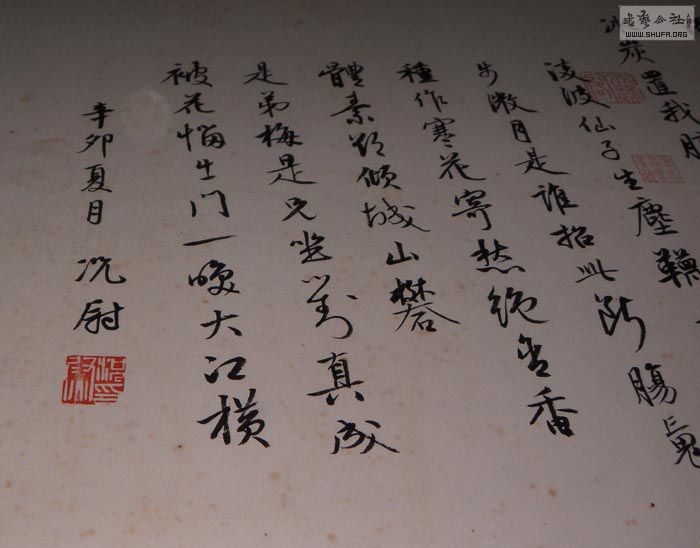 書藝公社
WWW.SHUFA.ORG
炭置我
淩波仙子生塵韈
步微月是誰招此斷腸魂
種作寒花寄愁絕含香
體素欲傾城山礬
是弟梅是兄坐對真成
被花惱出門一笑大江橫
辛卯夏月況尉